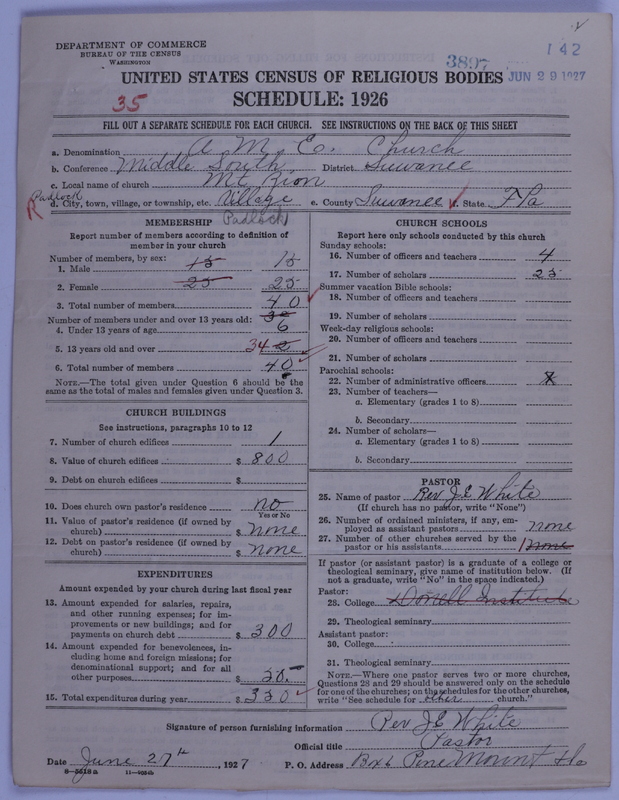 DEPARTMENT OF COMMERCE
BUREAU OF THE CENSUS
WASHINGTON
3897
142
JUN 29 1927
UNITED STATES CENSUS OF RELIGIOUS BODIES
35
SCHEDULE: 1926
FILL OUT A SEPARATE SCHEDULE FOR EACH CHURCH. SEE INSTRUCTIONS ON THE BACK OF THIS SHEET
a. Denomination A. M. E. Church
b. Conference Middle South District Suwanee
c. Local name of church Mt. Zion
Padlock
d. City, town, village, or township, etc. Village e. County Suwanee f. State Fla
Padlock
MEMBERSHIP
Report number of members according to definition of
member in your church
Number of members, by sex:
1. Male 15 15
2. Female 25 25
3. Total number of members 40
Number of members under and over 13 years old:
4. Under 13 years of age 6
5. 13 years old and over 34
6. Total number of members 40
NOTE.—The total given under Question 6 should be the
same as the total of males and females given under Question 3.
CHURCH BUILDINGS
See instructions, paragraphs 10 to 12
7. Number of church edifices 1
8. Value of church edifices $ 800
9. Debt on church edifices $
10. Does church own pastor's residence no
Yes or No
11. Value of pastor's residence (if owned by
church) $ none
12. Debt on pastor's residence (if owned by
church) $ none
EXPENDITURES
Amount expended by your church during last fiscal year
13. Amount expended for salaries, repairs,
and other running expenses; for im-
provements or new buildings; and for
payments on church debt $ 300
14. Amount expended for benevolences, in-
cluding home and foreign missions; for
denominational support; and for all
other purposes $
15. Total expenditures during year $ 350
CHURCH SCHOOLS
Report here only schools conducted by this church
Sunday schools:
16. Number of officers and teachers 4
17. Number of scholars 25
Summer vacation Bible schools:
18. Number of officers and teachers
19. Number of scholars
Week-day religious schools:
20. Number of officers and teachers
21. Number of scholars
Parochial schools:
22. Number of administrative officers
23. Number of teachers—
a. Elementary (grades 1 to 8)
b. Secondary
24. Number of scholars—
a. Elementary (grades 1 to 8)
b. Secondary
PASTOR
25. Name of pastor Rev J E White
(If church has no pastor, write "None")
26. Number of ordained ministers, if any, em-
ployed as assistant pastors none
27. Number of other churches served by the
pastor or his assistants 1 none
If pastor (or assistant pastor) is a graduate of a college or
theological seminary, give name of institution below. (If
not a graduate, write "No" in the space indicated.)
Pastor:
28. College Institute
29. Theological seminary
Assistant pastor:
30. College
31. Theological seminary
NOTE.—Where one pastor serves two or more churches,
Questions 28 and 29 should be answered only on the schedule
for one of the churches; on the schedules for the other churches,
write "See schedule for other church."
Signature of person furnishing information Rev J E White
Official title Pastor
Date June 27th, 1927 P. O. Address Box 6 Pine Mount Fla
8—5518a 11—9054b